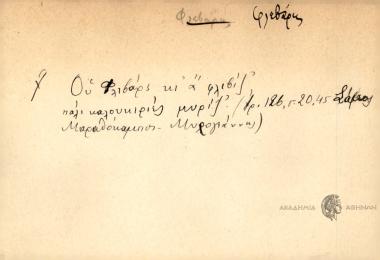 Φλεβάρης Φλεβάρης
Οὑ Φλιβάρς κι ἀ φλιβίζ'
πάλι καλουκιριές μυρίζ'. (ἀρ. 126, σ. 20, 45 Σάμος
Μαραθόκαμπος - Μυρογιάννης)
ΑΚΑΔΗΜΙΑ ΑΘΗΝΩΝ